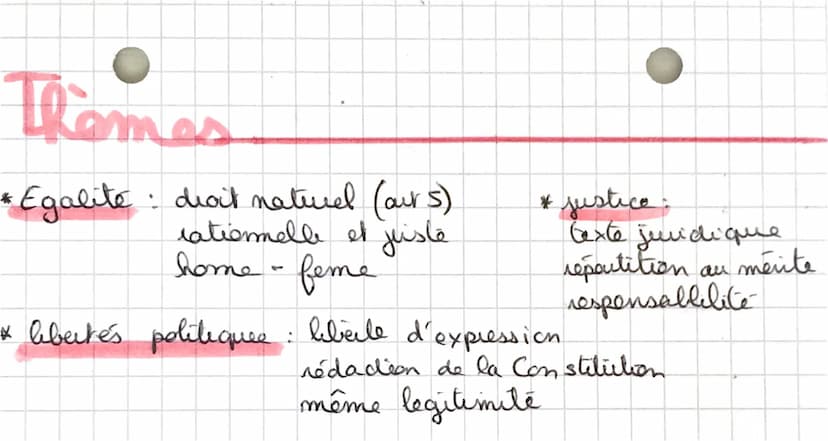 Thèmes
* Egalité : droit naturel (art 5)
rationnelle et juste
home - feme
* justice :
texte juridique
répartition au mérite
responsabilité
* libertés politiques : liberté d'expression
rédaction de la Constitution
même legitimité